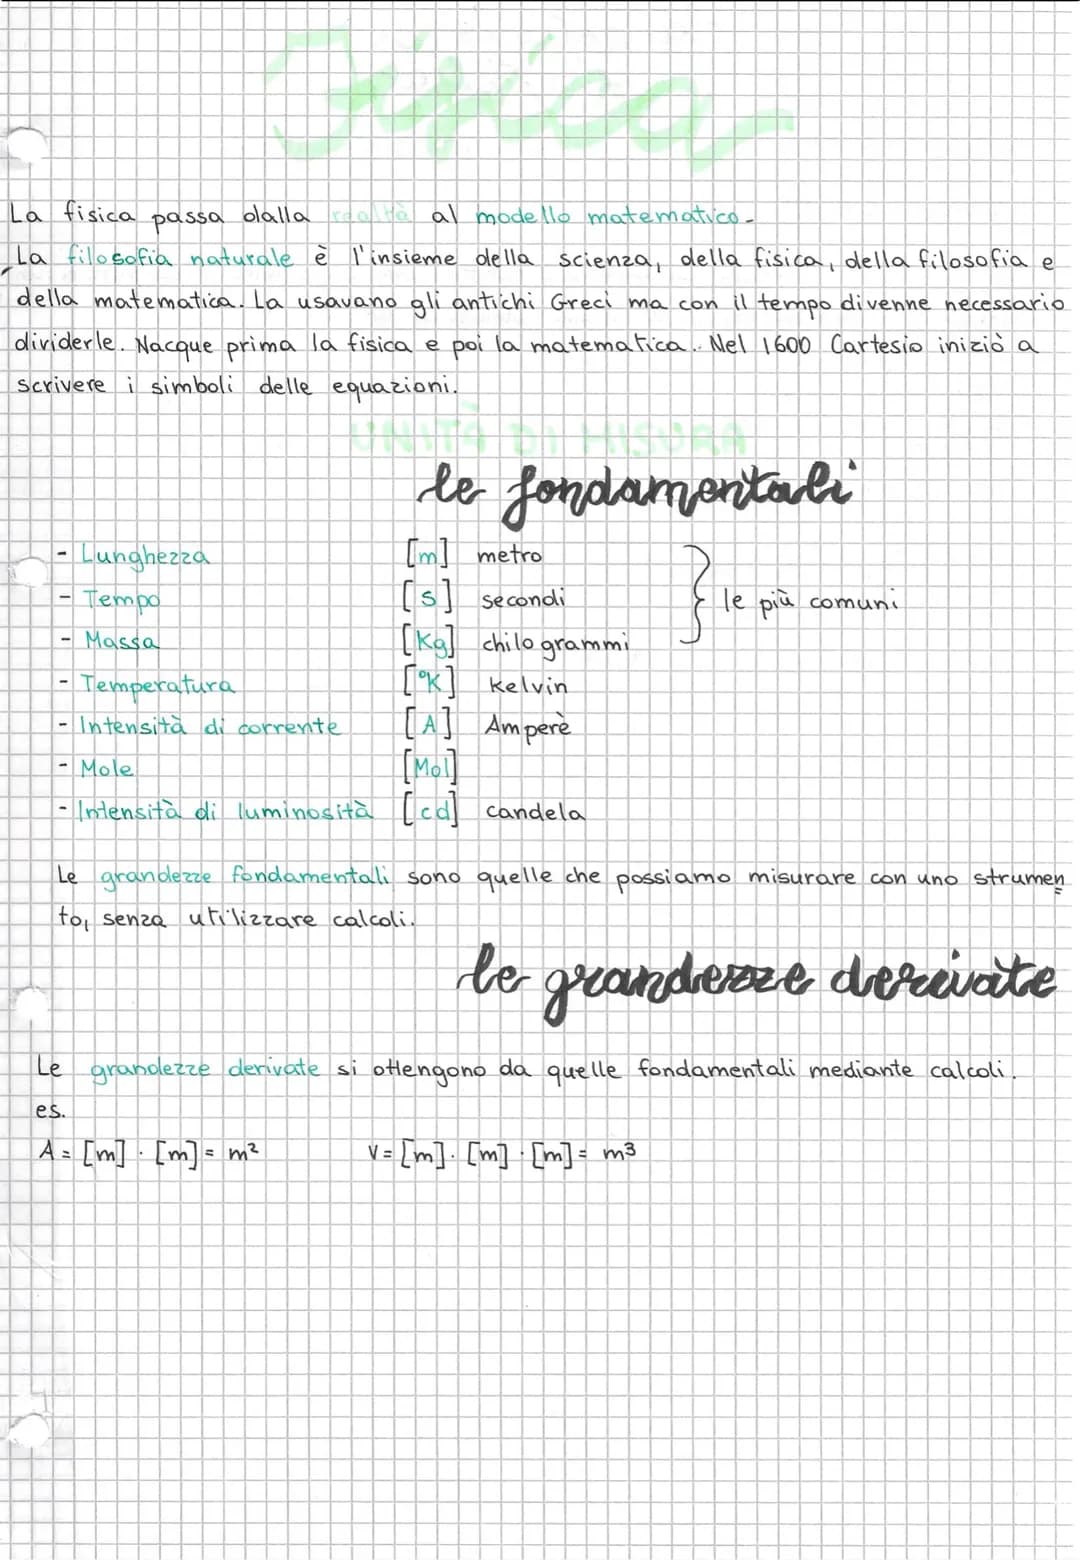 Fisica
La fisica passa dalla realtà al modello matematico.
La filosofia naturale è l'insieme della scienza, della fisica, della filosofia e
della matematica. La usavano gli antichi Greci ma con il tempo divenne necessario
dividerle. Nacque prima la fisica e poi la matematica. Nel 1600 Cartesio iniziò a
scrivere i simboli delle equazioni.
UNITÀ DI MISURA
le fondamentali
- Lunghezza [m] metro
- Tempo [s] secondi } le più comuni
- Massa [Kg] chilogrammi
- Temperatura [°K] kelvin
- Intensità di corrente [A] Amperè
- Mole [Mol]
- Intensità di luminosità [cd] candela
Le grandezze fondamentali sono quelle che possiamo misurare con uno strumen
to, senza utilizzare calcoli.
le grandezze derivate
Le grandezze derivate si ottengono da quelle fondamentali mediante calcoli.
es.
A = [m] · [m] = m² V = [m] · [m] · [m] = m³